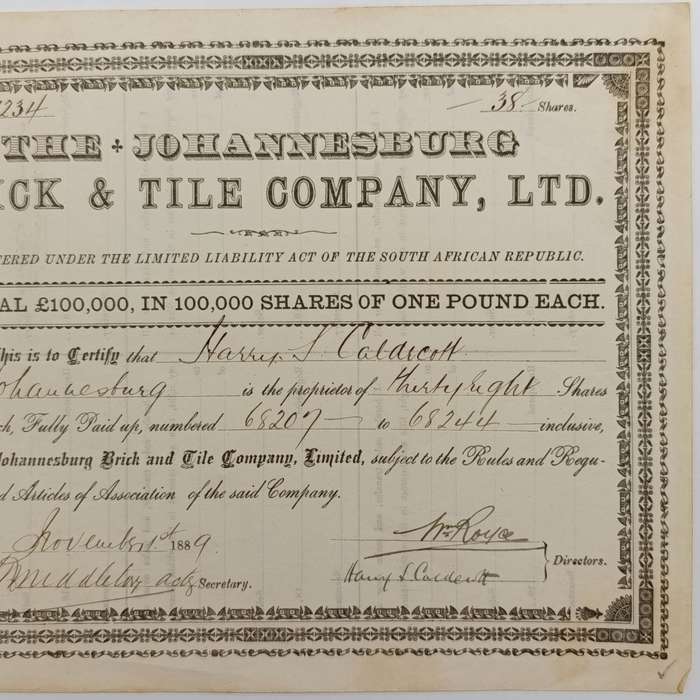 234 38 Shares.
THE JOHANNESBURG
ICK & TILE COMPANY, LTD.
TERED UNDER THE LIMITED LIABILITY ACT OF THE SOUTH AFRICAN REPUBLIC.
AL £100,000, IN 100,000 SHARES OF ONE POUND EACH.
This is to Certify that Harry S. Caldecott
ohannesburg is the proprietor of thirty eight Shares
ch, Fully Paid up, numbered 68207 to 68244 inclusive,
Johannesburg Brick and Tile Company, Limited, subject to the Rules and Regu-
d Articles of Association of the said Company.
November 1st 1889. Wm Royce
Middleton actg Secretary. Harry S Caldecott Directors.